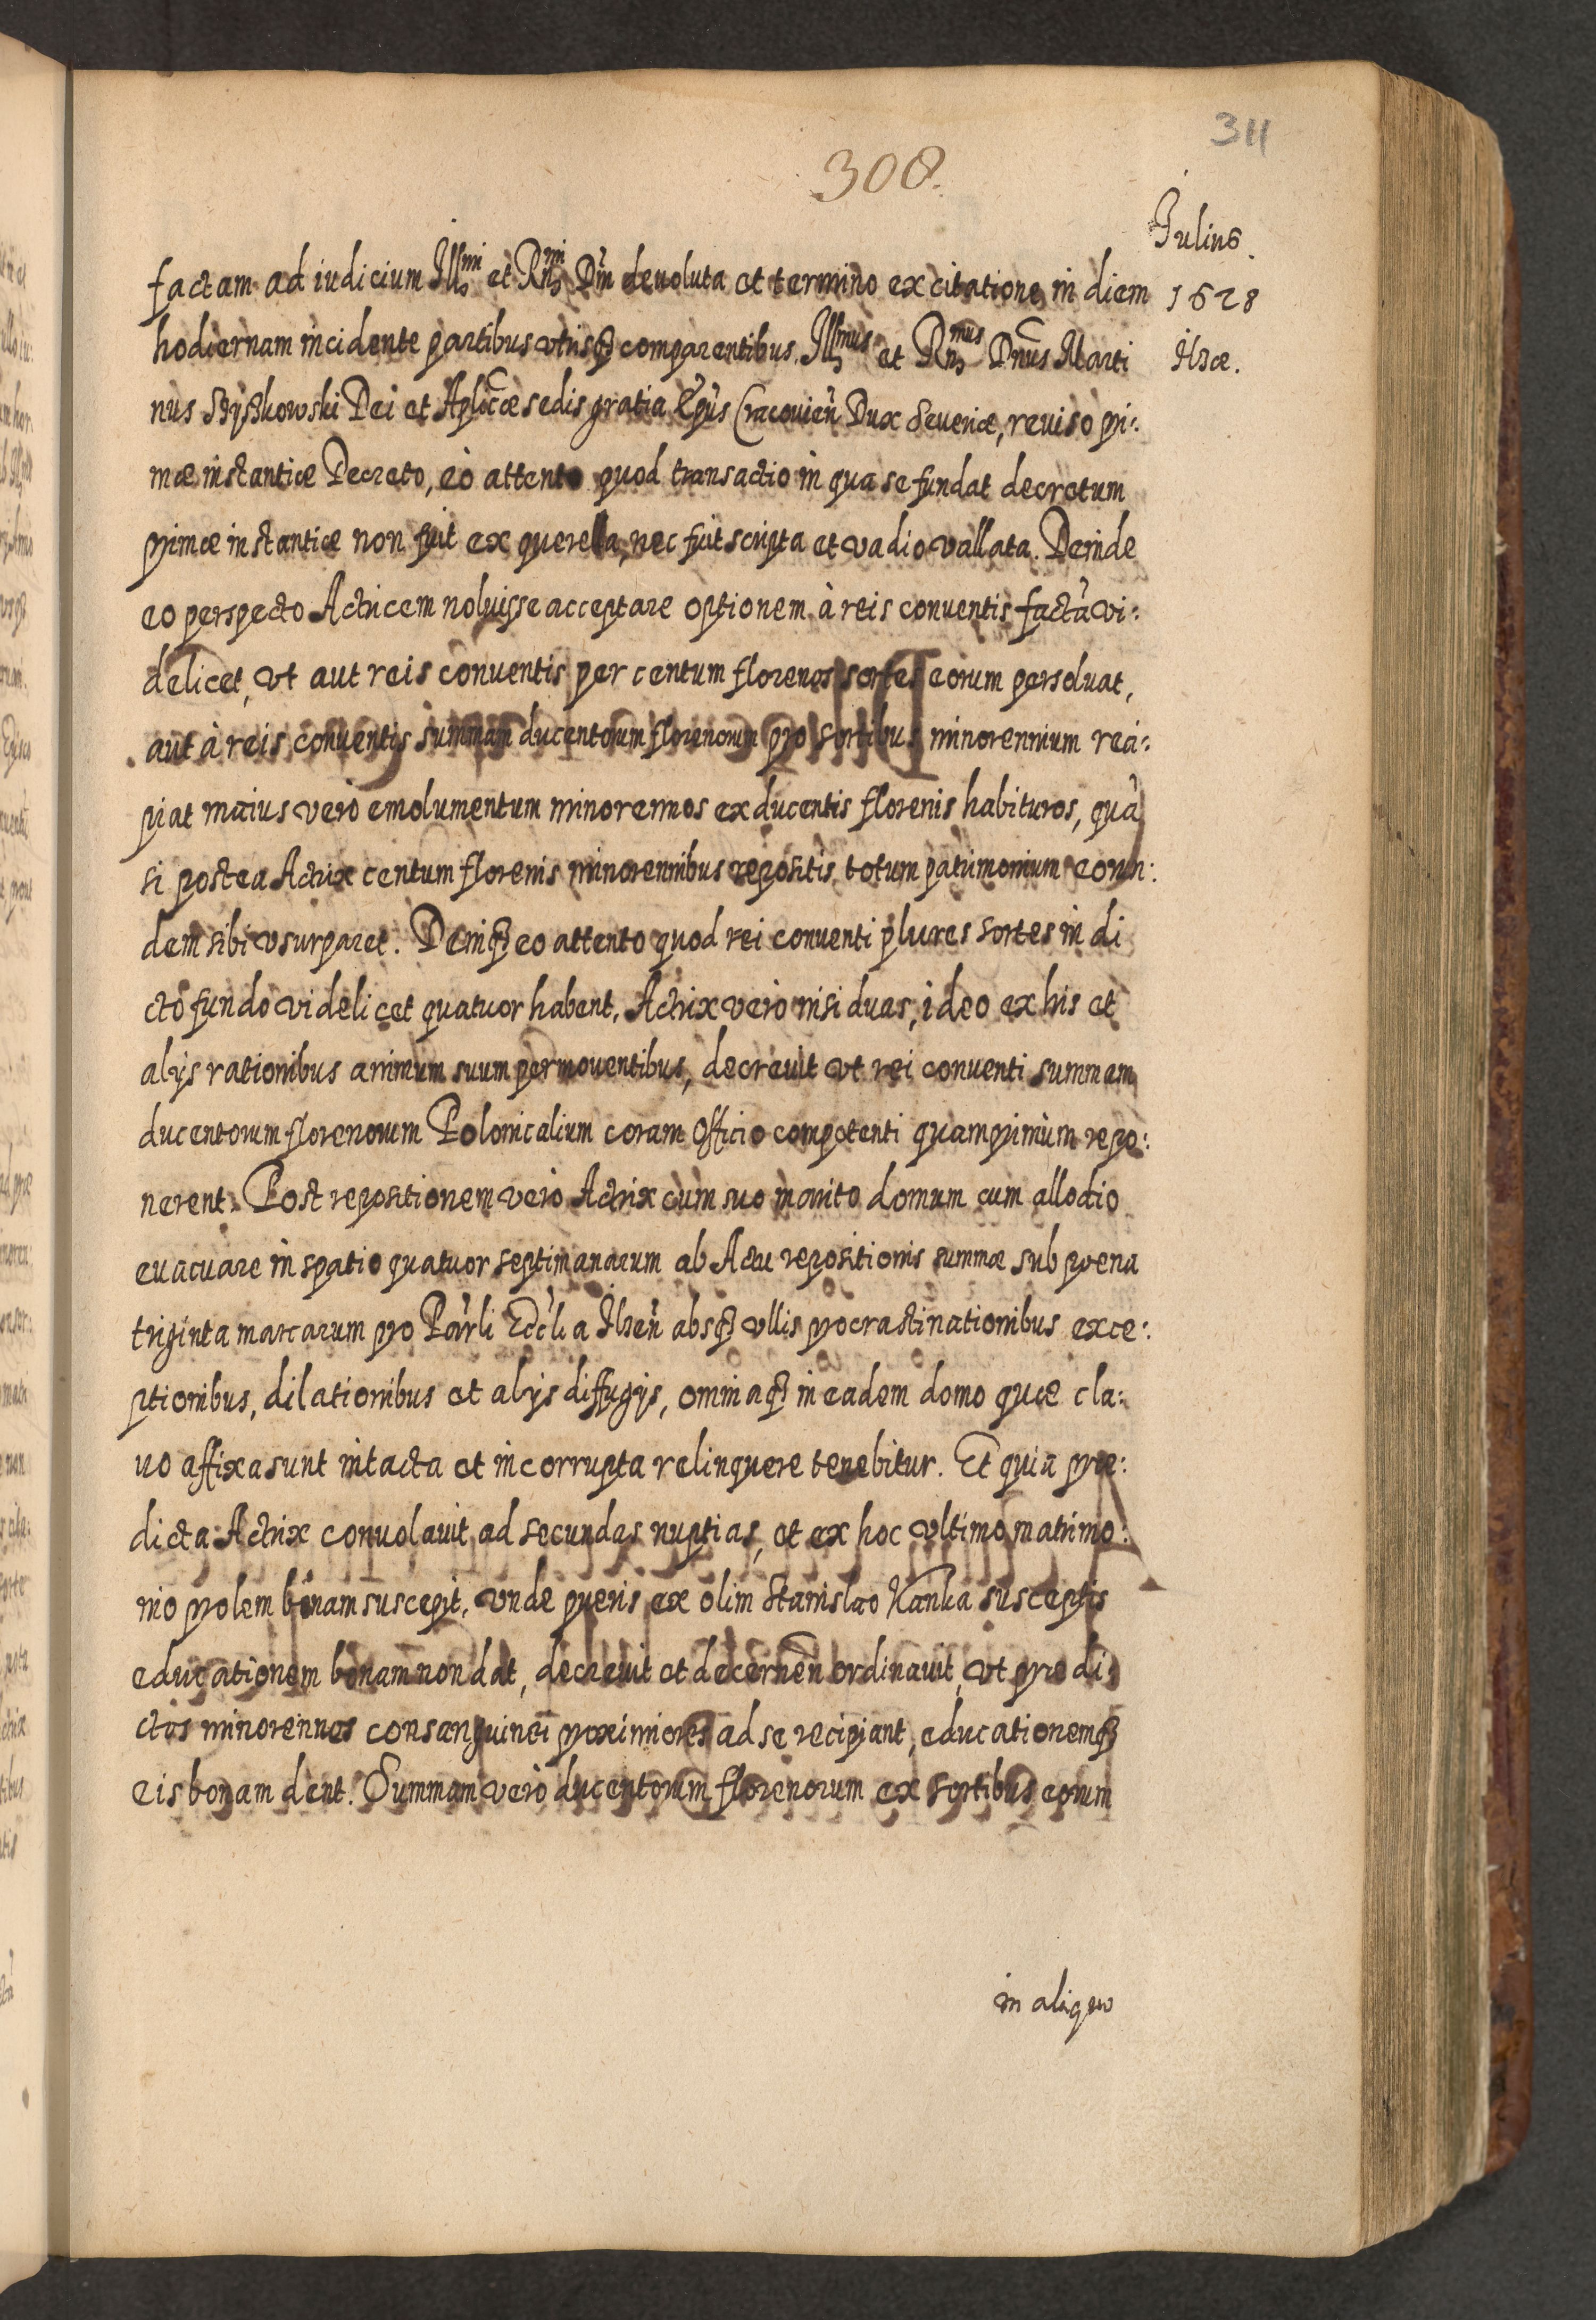 311
308.
Julius.
factam ad iudicium Illmi et Rmi Dni deuoluta et termino ex citatione in diem 1628
hodiernam incidente partibus vtrisq comparentibus. Illmus et Rmus Dnus Marti Ilzæ.
nus Szyszkowski Dei et Aplicæ sedis gratia Epus Cracouien Dux Seueriæ, reuiso pri:
mæ instantiæ Decreto, eò attento quod transactio in qua se fundat decretum
primæ instantiæ non fuit ex querella, nec fuit scripta et vadio vallata. Deinde
eo perspecto Actricem noluisse acceptare optionem à reis conuentis factã vi:
delicet, vt aut reis conuentis per centum florenos sortes eorum persoluat,
aut à reis conuentis summam ducentorum florenorum pro sortibus minorennium reci:
piat maius vero emolumentum minorennos ex ducentis florenis habituros, quã
si postea Actrix centum florenis minorennibus repositis, totum patrimonium eorun:
dem sibi vsurparet. Deniq eo attento quod rei conuenti plures sortes in di
cto fundo videlicet quatuor habent, Actrix verò nisi duas, ideo ex his et
alijs rationibus animum suum permouentibus, decreuit vt rei conuenti summam
ducentorum florenorum Polonicalium coram Officio competenti quamprimùm repo:
nerent. Post repositionem verò Actrix cum suo marito domum cum allodio
euacuare in spatio quatuor septimanarum ab Actu repositionis summæ sub poena
triginta marcarum pro Parli Eccla Ilzen absq vllis procrastinationibus exce:
ptionibus, dilationibus et alijs diffugijs, omniaq in eadem domo quæ cla:
uo affixa sunt intacta et incorrupta relinquere tenebitur. Et quia præ:
dicta Actrix conuolauit ad secundas nuptias, et ex hoc vltimo matrimo:
nio prolem bonam suscepit, vnde pueris ex olim Stanislao Kanka susceptis
educationem bonam non dat, decreuit et decernen ordinauit, vt prædi:
ctos minorennos consanguinei proximiores ad se recipiant, educationemq
eis bonam dent. Summam verò ducentorum florenorum ex sortibus eorum
in aliquo